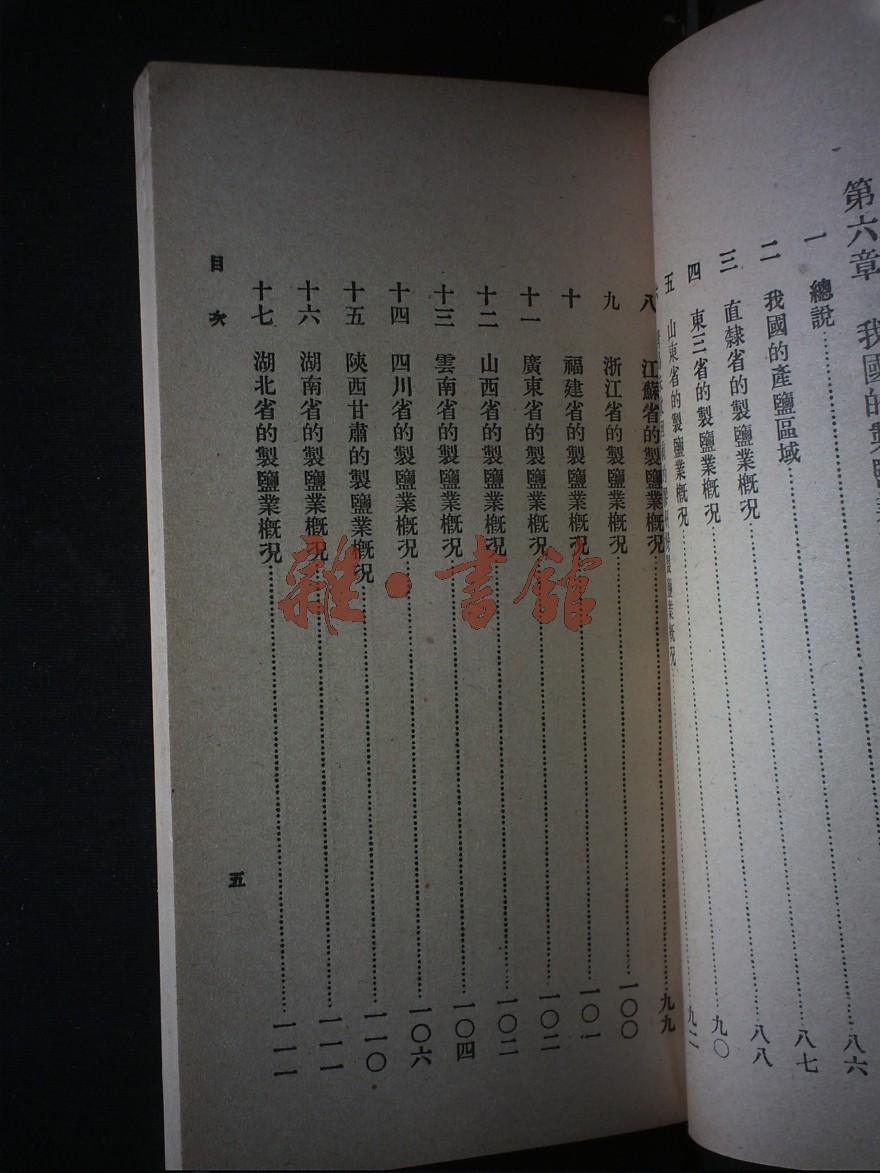 第六章 我國的製鹽業
一 總說……八六
二 我國的產鹽區域……八七
三 直隸省的製鹽業槪况……八八
四 東三省的製鹽業槪况……九〇
五 山東省的製鹽業槪况……九二
八 江蘇省的製鹽業槪况……九九
九 浙江省的製鹽業槪况……一〇〇
十 福建省的製鹽業槪况……一〇一
十一 廣東省的製鹽業槪况……一〇二
十二 山西省的製鹽業槪况……一〇二
十三 雲南省的製鹽業槪况……一〇四
十四 四川省的製鹽業槪况……一〇六
十五 陝西甘肅的製鹽業槪况……一一〇
十六 湖南省的製鹽業槪况……一一一
十七 湖北省的製鹽業槪况……一一一
目次
五
雜·書館